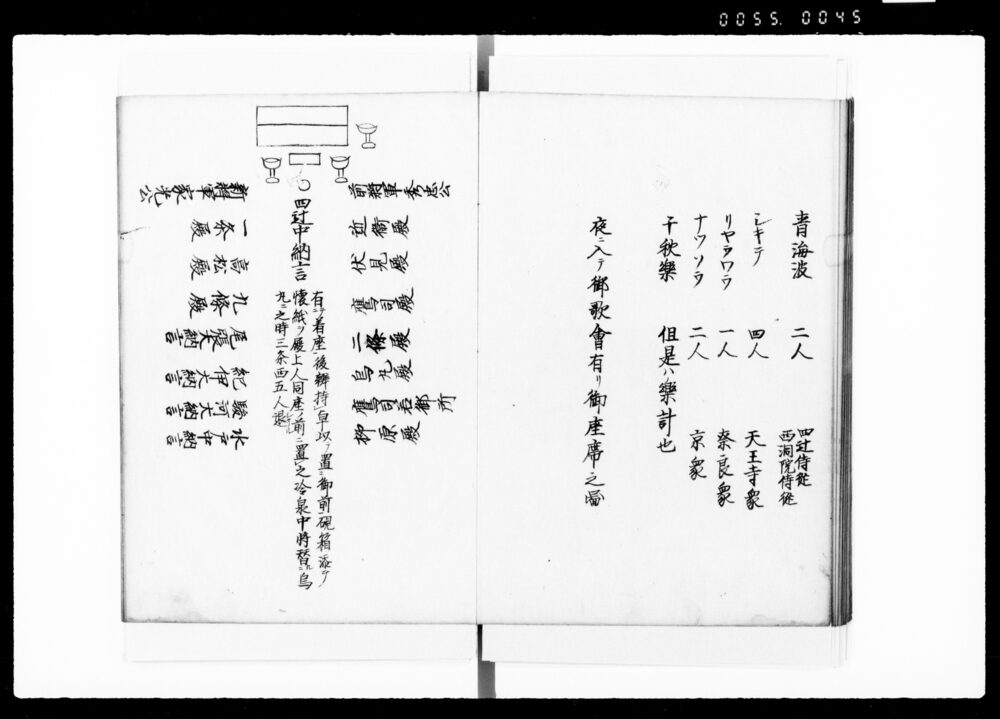 0055. 0045
青海波 二人 四辻侍従
西洞院侍従
シキテ 四人 天王寺衆
リヤウワウ 一人 奈良衆
ナツソリ 二人 京衆
千秋樂 但是ハ樂計也
夜ニ入テ御歌會有リ御座席之圖
前將軍秀忠公
近衞殿
伏見殿
鷹司殿
二條殿
烏丸殿
鷹司若御所
柳原殿
四辻中納言
有着座後辨持 卓以置御前硯箱添テ
懐紙ヲ殿上人同座ノ前ニ置之冷泉中將替ニ烏
丸ニ之時三条西五人退
新將軍家光公
一条殿
高松殿
九條殿
尾張大納言
紀伊大納言
駿河大納言
水戸中納言